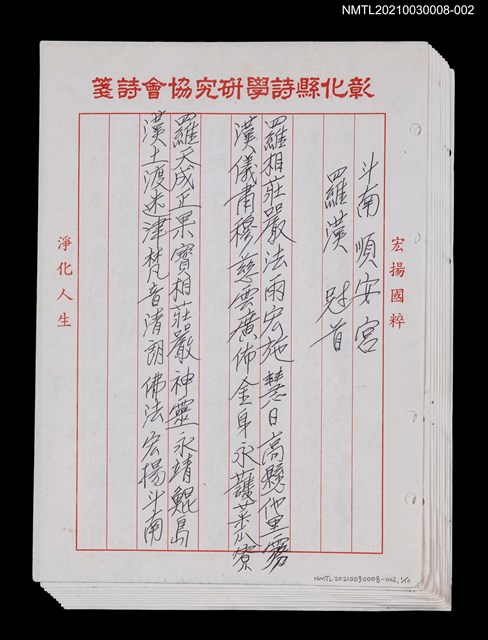 NMTL20210030008-002
彰化縣詩學研究協會詩箋
宏揚國粹
斗南順安宮
羅漢 冠首
羅相莊嚴法雨宏施慧日高懸他里霧
漢儀肅穆慈雲廣佈金身永護菜公寮
羅天成正果寶相莊嚴神靈永靖鯤島
漢土渡迷津梵音清朗佛法宏揚斗南
淨化人生
NMTL20210030008-002, 1/50